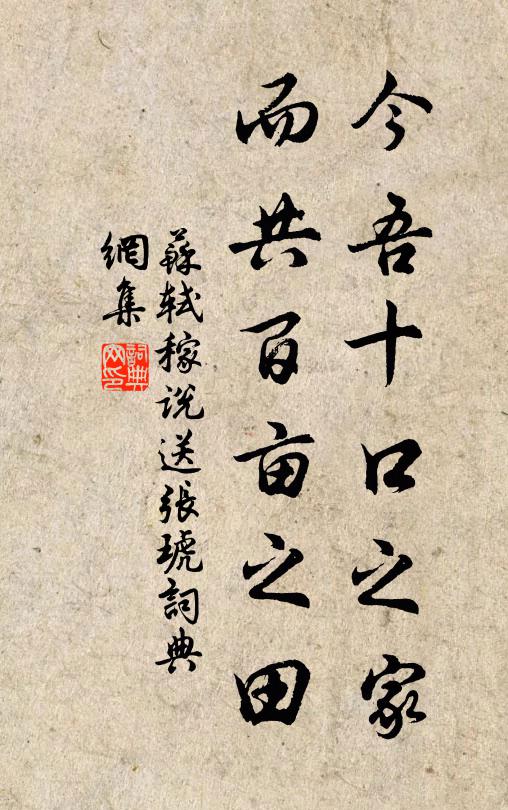 今吾十口之家
而共百亩之田
蘇轼稼说送張琥詞典
網集
詞典
网印